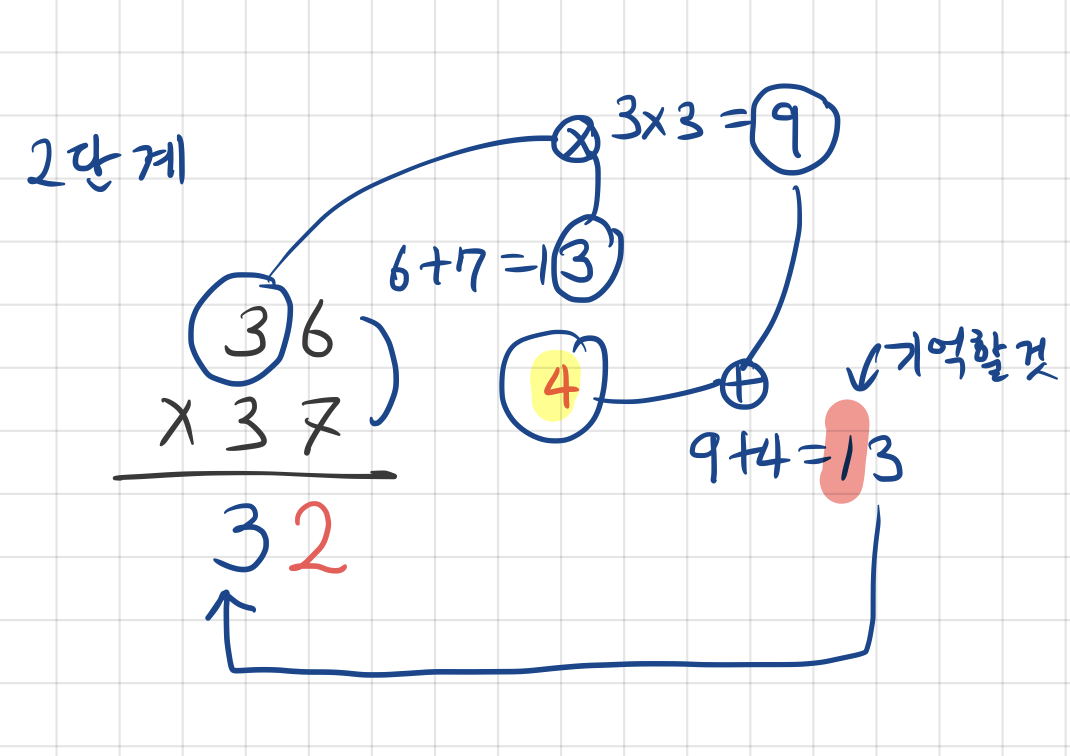 2단계
3×3=9
6+7=13
36
×37
32
4
기억할 것
9+4=13